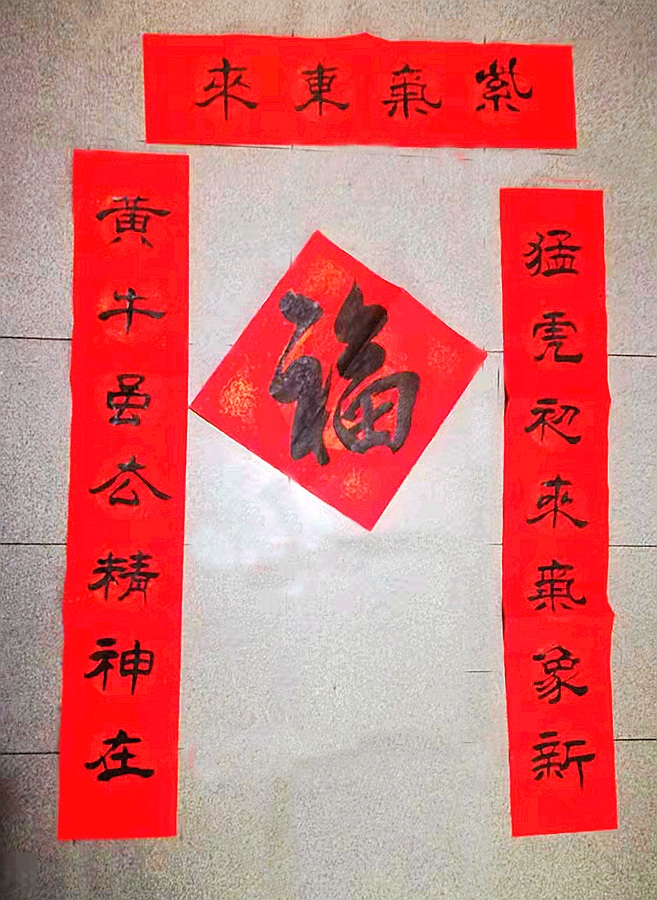 紫氣東來
猛虎初來氣象新
福
黄牛邑去精神在